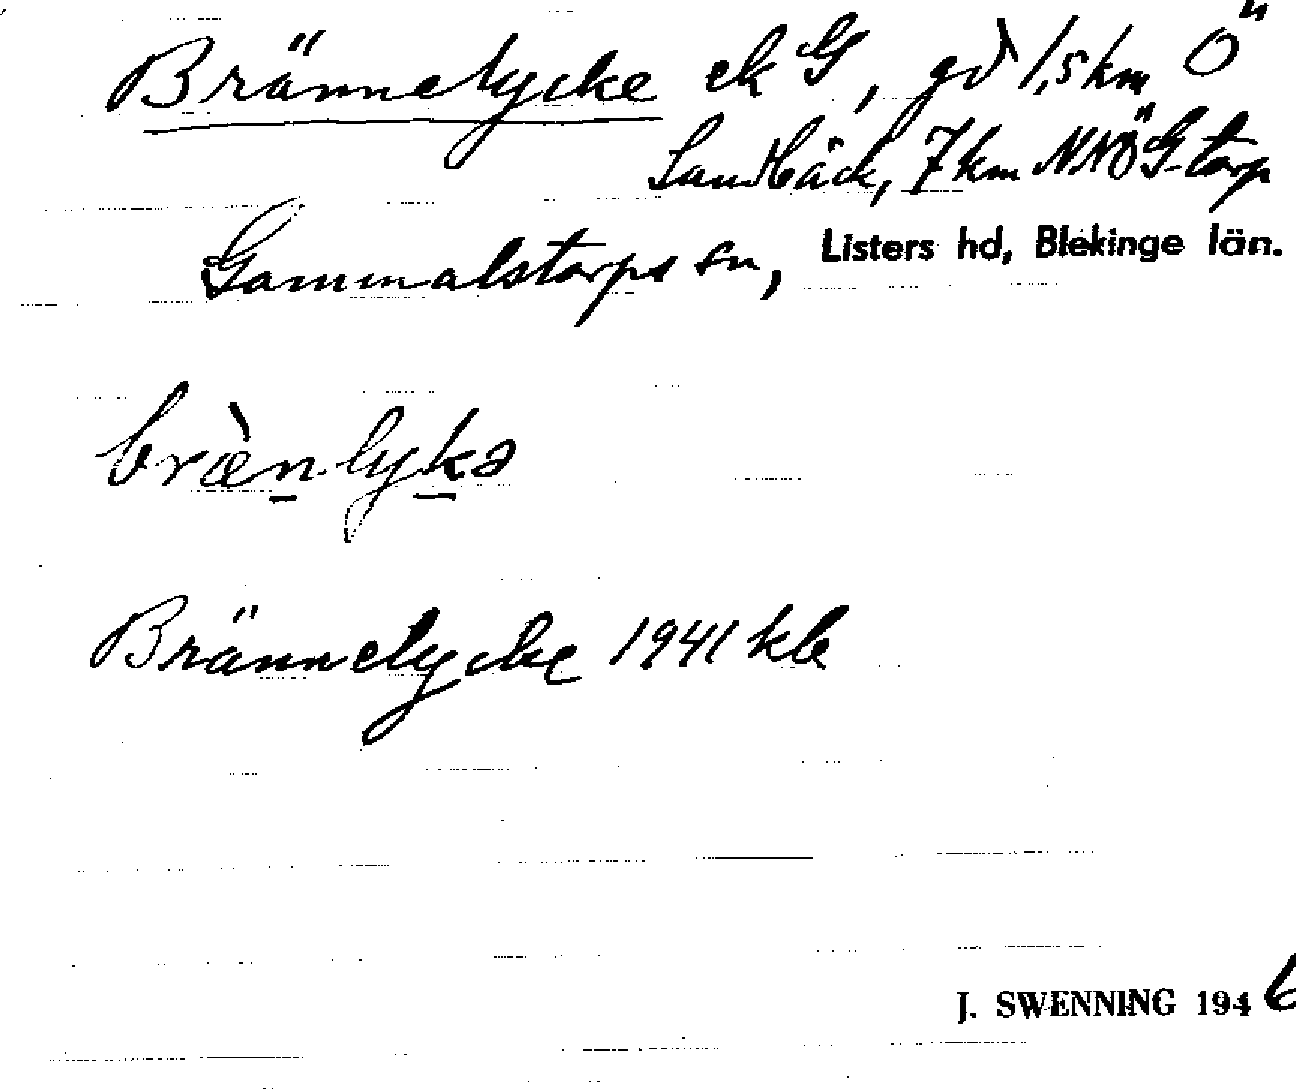 Brännelycke ek G, gd 1,5 km Ö
Sandbäck, 7 km NNÖ G-torp
Gammalstorps sn, Listers hd, Blekinge län.
bræ̀n̲lyk̲ə
Brännelycke 1941 kb
J. SWENNING 1946